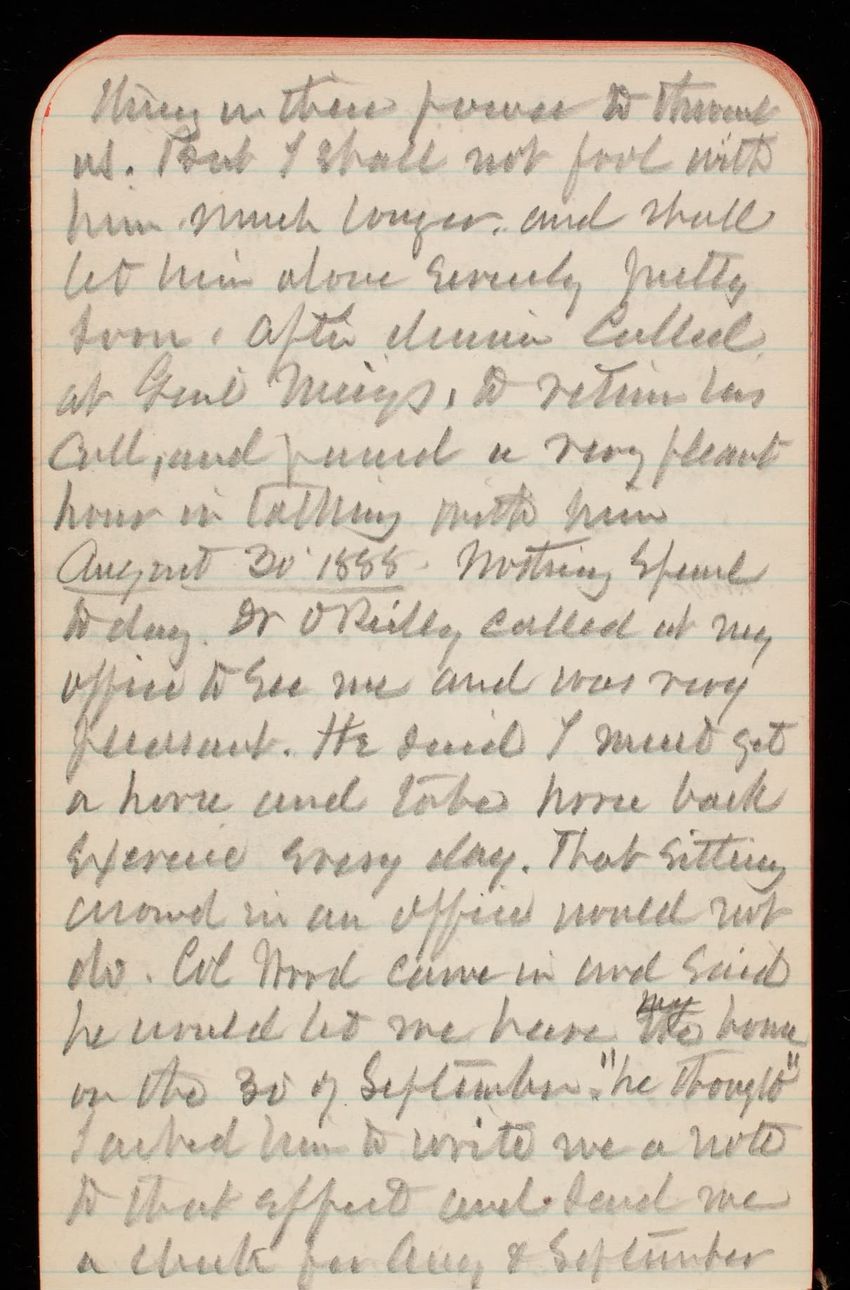 thing in their power to thwart
us. But I shall not fool with
him much longer. and shall
let him alone severely pretty
soon. After dinner called
at Genl Meigs, to return his
call, and passed a very pleasant
hour in talking with him
August 30 1888. Nothing special
to day. Dr O'Reilly called at my
office to see me and was very
pleasant. He said I must get
a horse and take horse back
exercise every day. That sitting
around in an office would not
do. Col Wood came in and said
he would let me have my house
on the 30 of September. "he thought"
I asked him to write me a note
to that effect and send me
a check for Aug & September